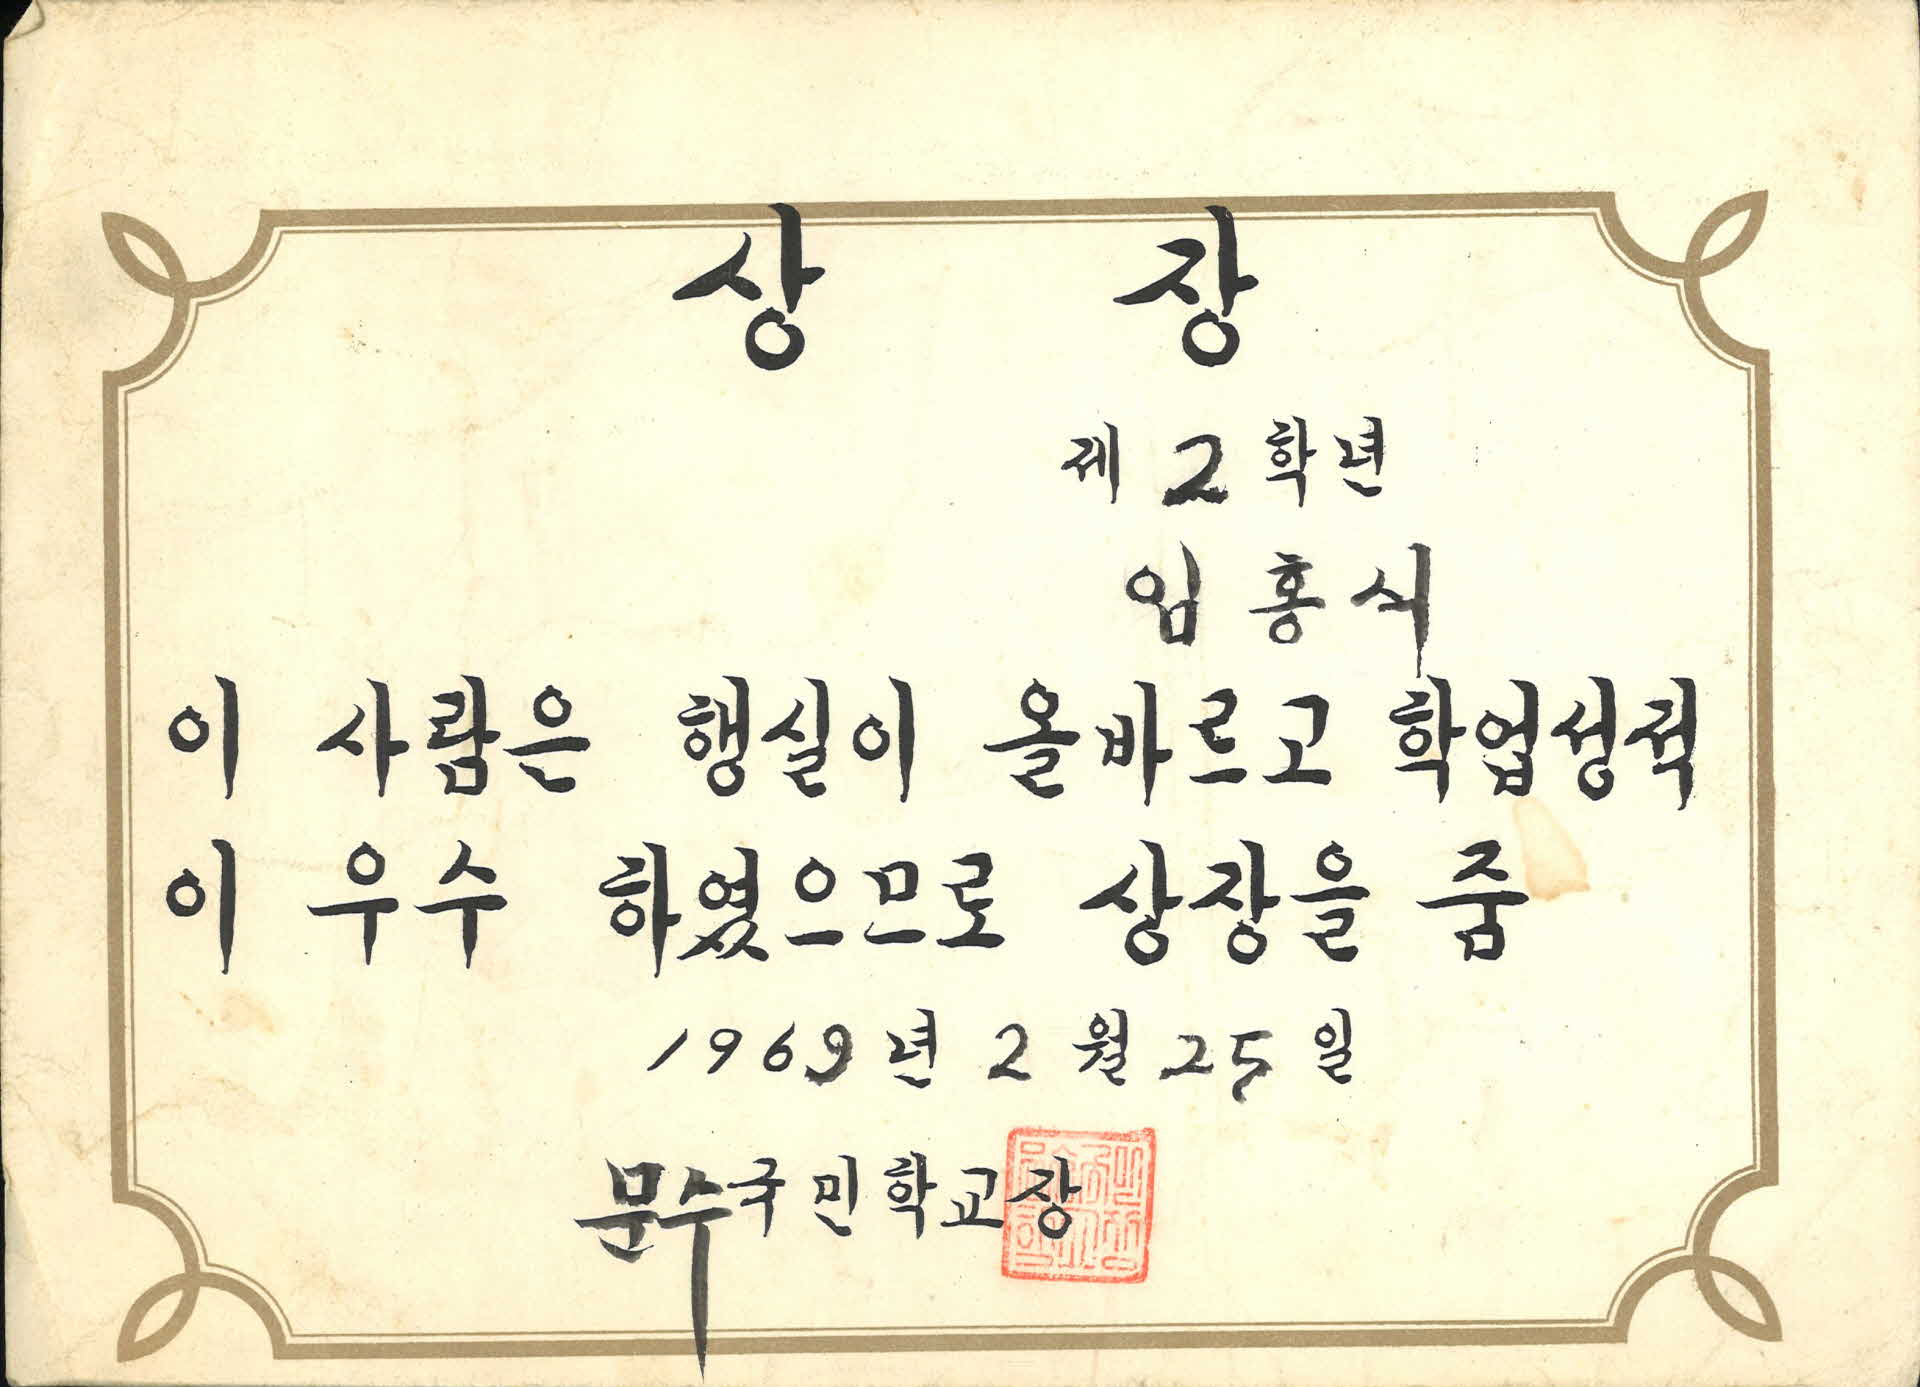 상 장
제 2 학년
임 홍 식
이 사람은 행실이 올바르고 학업성적
이 우수 하였으므로 상장을 줌
1969년 2월 25일
문수국민학교장